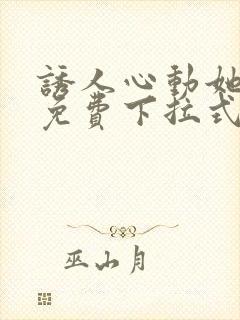 誘人心動她
免費下拉式
巫山月